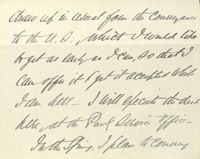 draw up in usual form the conveyance
to the U.S., which I would like
to get as early as I can, so that I can
offer it & get it accepted while
I am here — I will execute the deed
here, at the office
In the Spring, I plan to convey